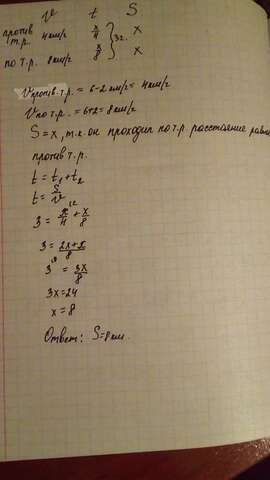 V t S
против т.р. 4 км/ч x/4 } 3ч. x
по т.р. 8 км/ч x/8 x
Vпротив т.р. = 6-2 км/ч = 4км/ч
Vпо т.р. = 6+2 = 8 км/ч
S = x, т.к. он проходил по т.р. расстояние
против т.р.
t = t₁ + t₂
t = S/v
3 = x/4 + x/8
3 = 2x+x/8
3 = 3x/8
3x = 24
x = 8
Ответ: S = 8 км.